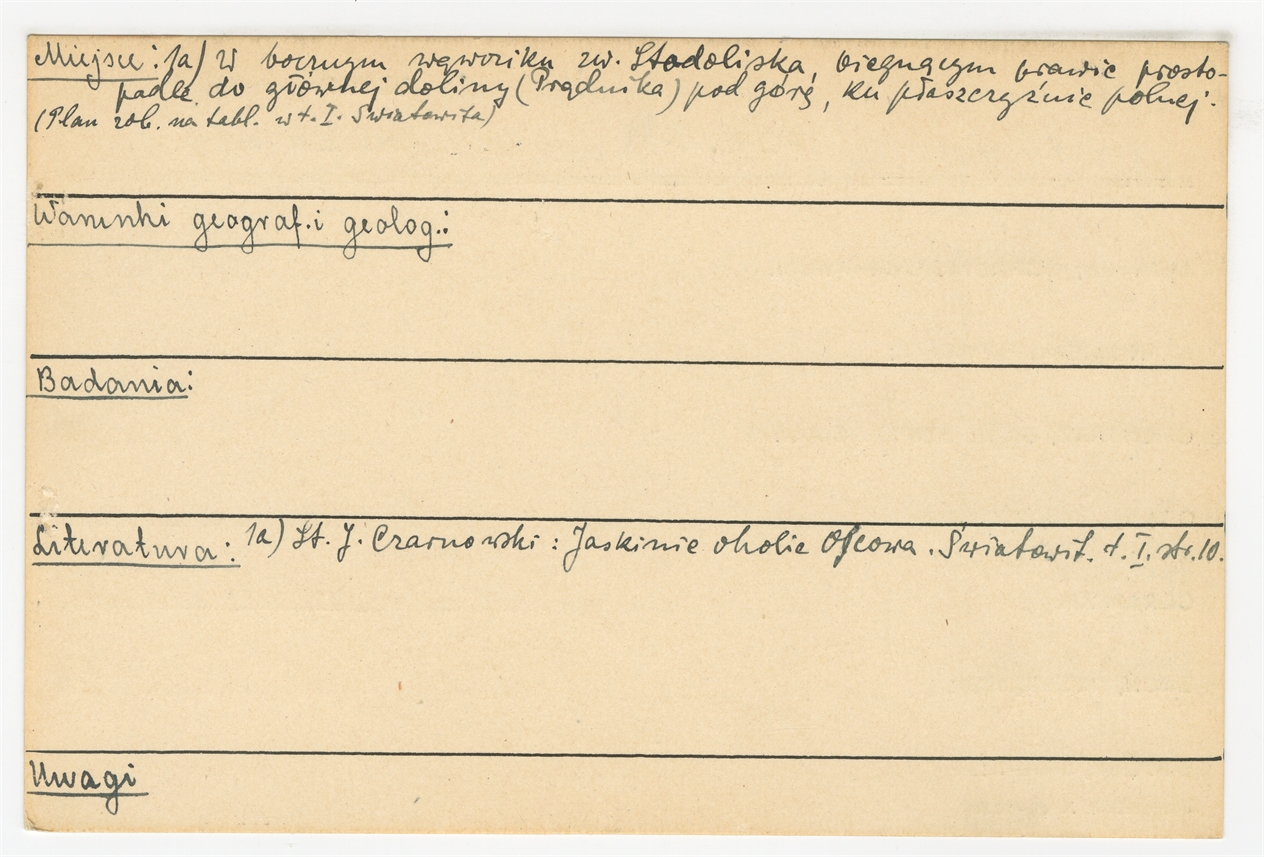 Miejsce: 1a) W bocznym wąwoziku zw. Stodoliska, biegnącym prawie prosto-
padle do głównej doliny (Prądnika) pod górę, ku płaszczyźnie polnej.
(Plan rob. na tabl. w t. I. Światowita)
Warunki geograf. i geolog.:
Badania:
Literatura: 1a) St. J. Czarnowski: Jaskinie okolic Ojcowa. Światowit. t. I. str. 10.
Uwagi